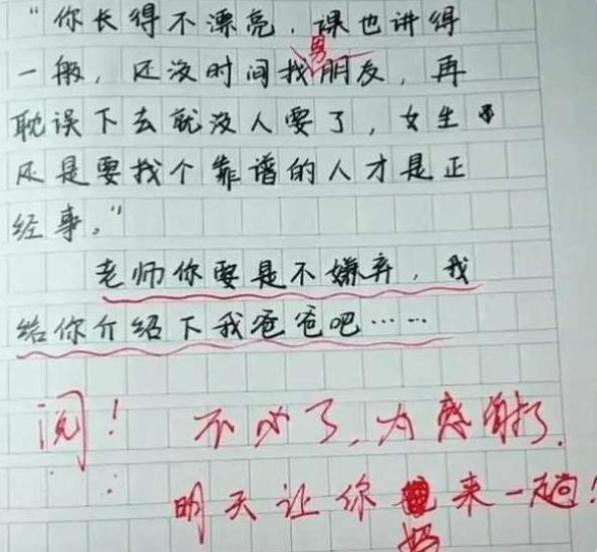 “你长得不漂亮，课也讲得
一般，还没时间找男朋友，再
耽误下去就没人要了，女生
还是要找个靠谱的人才是正
经事。”
老师你要是不嫌弃，我
给你介绍下我爸爸吧……
阅！ 不必了，太感谢了。
明天让你妈来一趟！